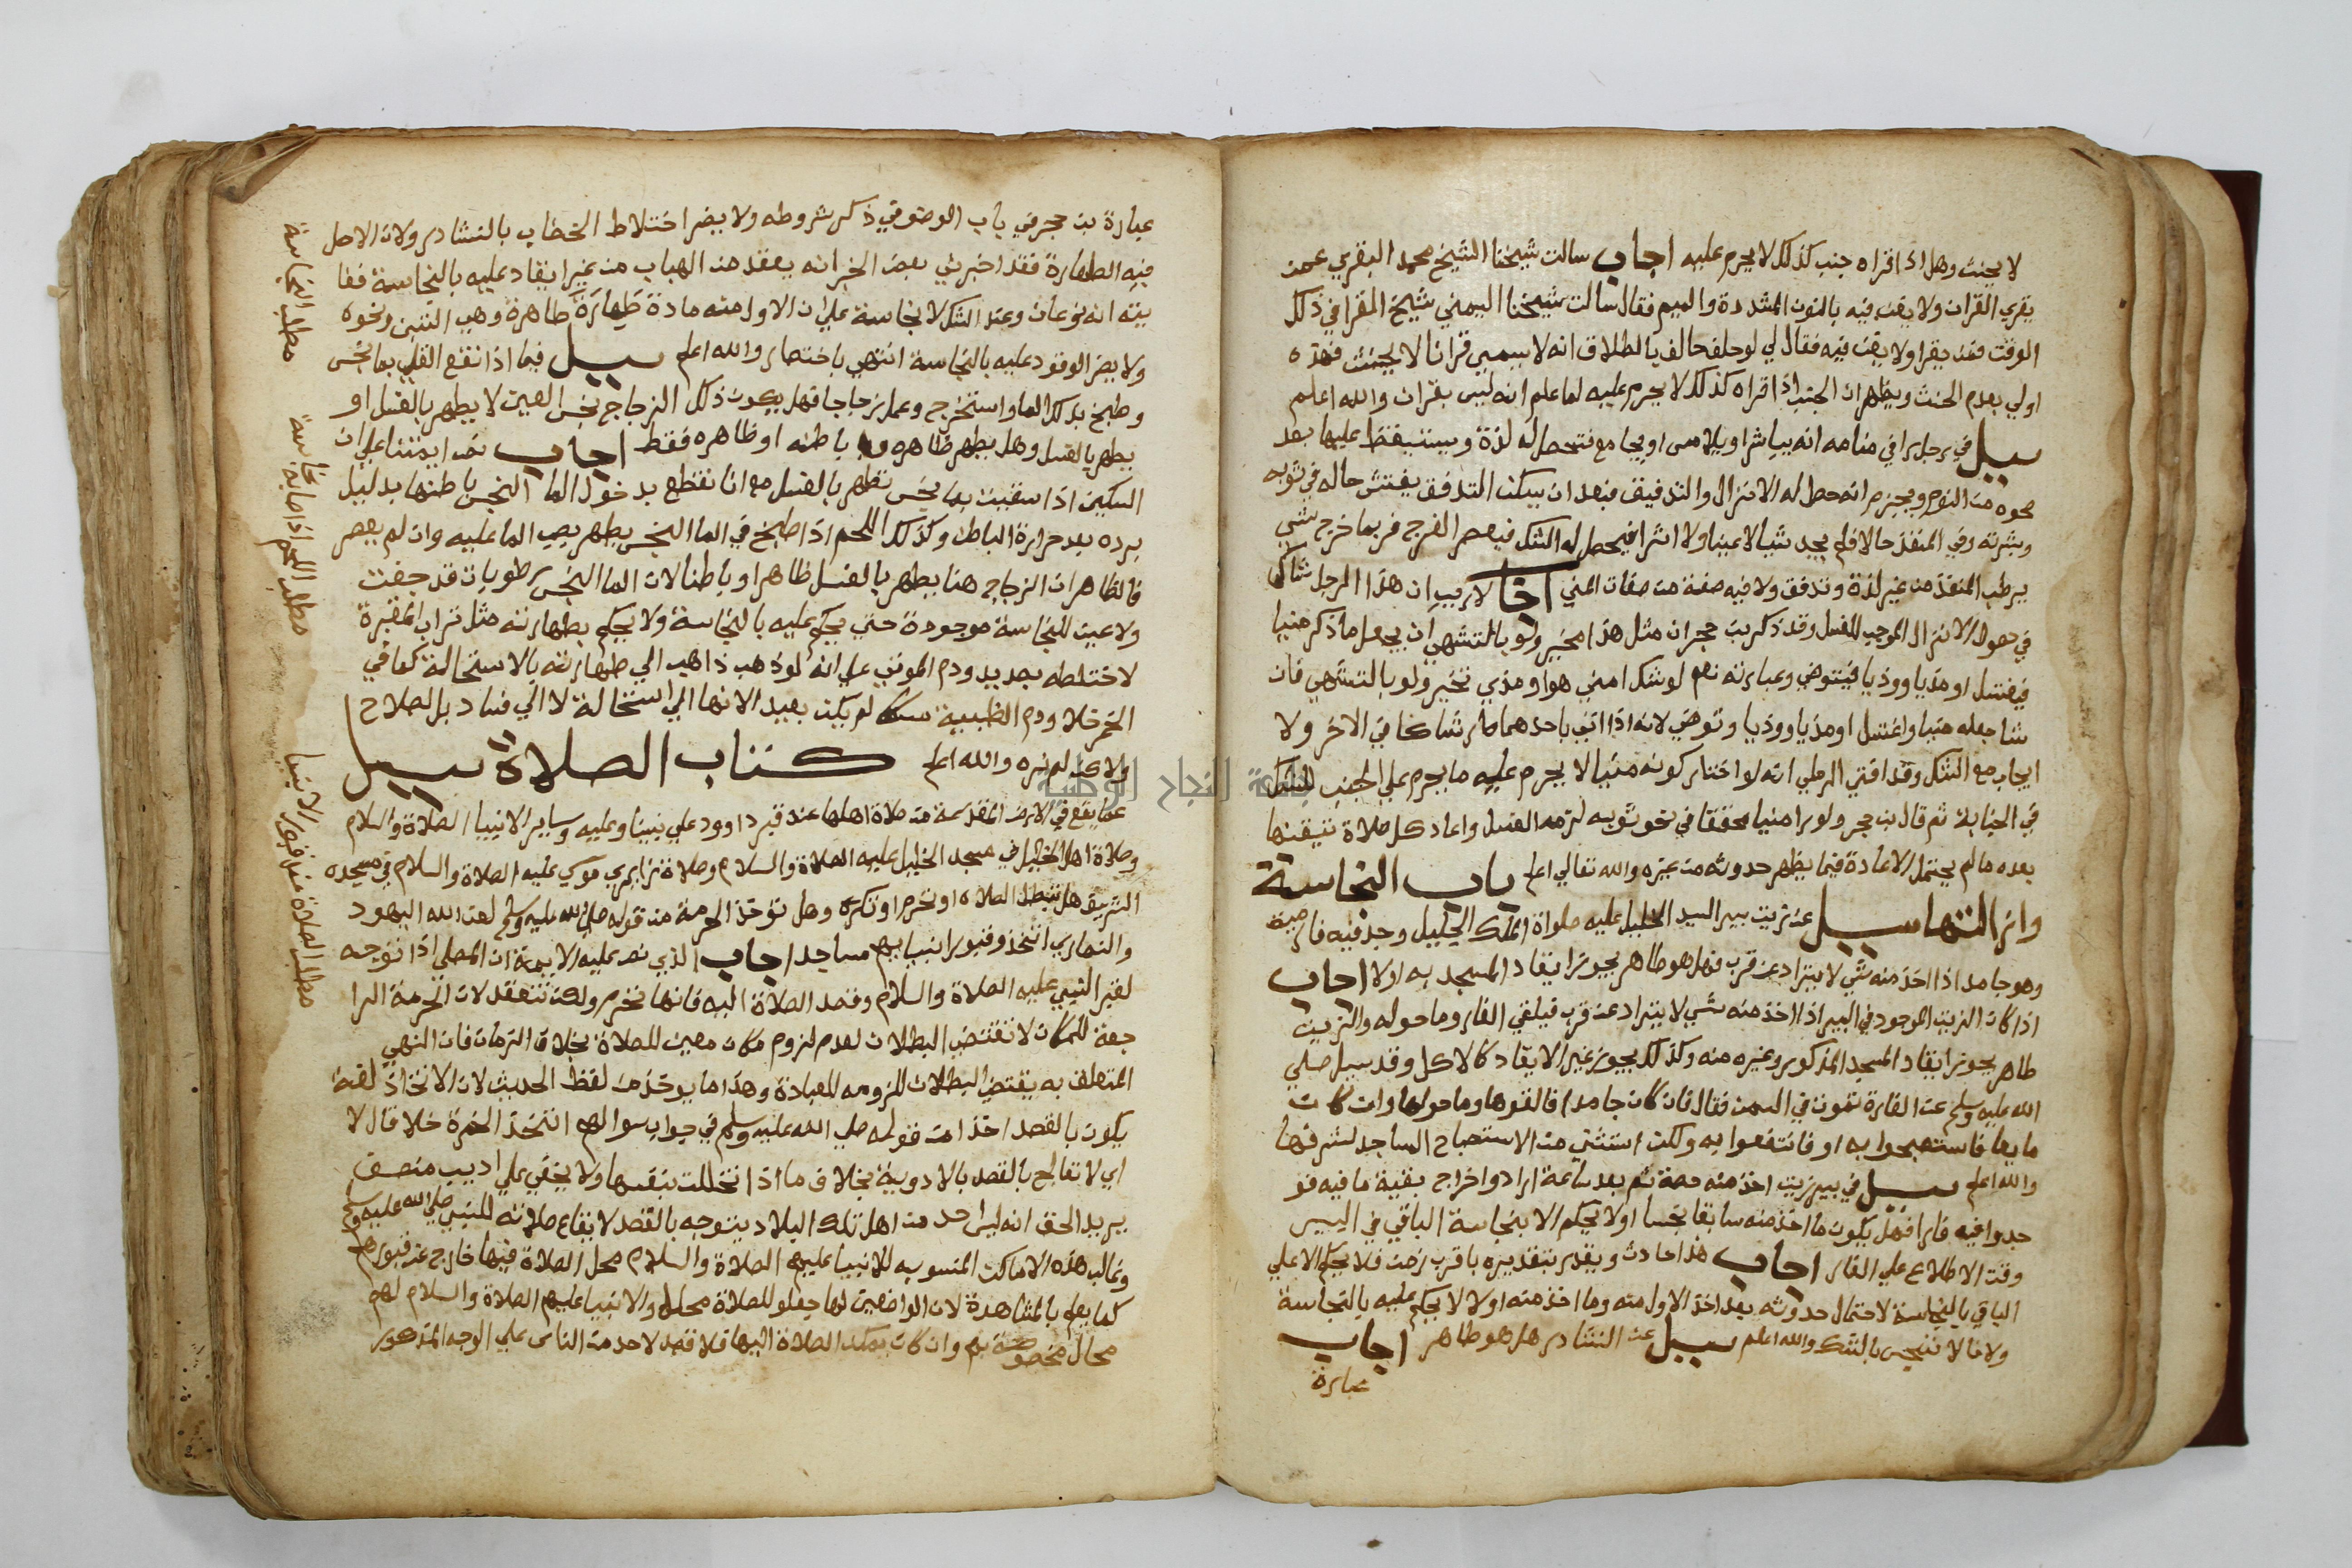 لا يحنث وهل اذا قراه جنب كذلك لا يحرم عليه اجاب سالت شيخنا الشيخ محمد البقري عمن
يقري القران ولا يغن فيه بالنون المشددة والميم فقال سالت شيخنا اليمني شيخ القرا في ذلك
الوقت فمن يقرا ولا يغن فيه فقال لي لو حلف حالف بالطلاق انه لا يسمى قرانا لا يحنث فهذه
اولي بعدم الحنث ويظهر ان الجنب اذا قراه كذلك لا يحرم عليه لما علم انه ليس بقران والله اعلم
سيل في رجل يرا في منامه انه يباشر او يلامس او يجامع فتحصل له لذة ويستيقظ عليها بعد
صحوه من النوم ويجزم انه حصل له الانزال والتدفيق فبعد ان يسكن التدفق يفتش حاله في ثوبه
وبشرته وفي المنفذ حالا فلم يجد شيا لا عينا ولا اثرا فيحصل له الشك فيعصر الفرج فربما خرج شي
يرطب المنفذ من غير لذة وتدفق ولا فيه صفة من صفات المني اجاب لا ريب ان هذا الرجل شاك
في حصول الانزال الموجب للغسل وقد ذكر بن حجر ان مثل هذا مخير ولو بالتشهي ان يجعل ما ذكر منيا
فيغتسل او مذيا ووذيا فيتوضي وعبارته نعم لو شك امني هو او مذي تخير ولو بالتشهي فان
شا جعله منيا واغتسل او مذيا ووذيا وتوضي لانه اذا اتي باحدهما صار شاكا في الاخر ولا
ايجاب مع الشك وقد افتي الرملي انه لو اختار كونه منيا لا يحرم عليه ما يحرم علي الجنب للشك
في الجنابة ثم قال بن حجر ولو را منيا محققا في نحو ثوبه لزمه الغسل واعاد كل صلاة تيقنها
بعده ما لم يحتمل الاعادة فيما يظهر حدوثه من غيره والله تعالي اعلم باب النجاسة
وازالتها سيل عن زيت بير السيد الخليل عليه صلواة الملك الجليل وجد فيه فار ميتة
وهو جامد اذا اخذ منه شي لا يتراد عن قرب فهل هو طاهر يجوز ايقاد المسجد به اولا اجاب
اذا كان الزيت الموجود في البير اذا اخذ منه شي لا يتراد عن قرب فيلقي الفار وما حوله والزيت
طاهر يجوز ايقاد المسجد المذكور وغيره منه وكذلك يجوز غير الايقاد كالاكل وقد سيل صلي
الله عليه وسلم عن الفارة تموت في السمن فقال فان كان جامدا فالقوها وما حولها وان كان
مايعا فاستصبحوا به او فانتفعوا به ولكن استثني من الاستصباح المساجد لشرفها
والله اعلم سيل في بير زيت اخذ منه حصة ثم بعد ساعة ارادو اخراج بقية ما فيه فو
جدوا فيه فارا فهل يكون ما اخذ منه سابقا نجسا اولا يحكم الا بنجاسة الباقي في البير
وقت الاطلاع علي الفار اجاب هذا حادث ويقدر بتقديره باقرب زمن فلا يحكم الا علي
الباقي بالنجاسة لاحتمال حدوثه بعد اخذ الاول منه وما اخذ منه اولا لا يحكم عليه بالنجاسة
ولانا لا ننجس بالشك والله اعلم سيل عن النشادر هل هو طاهر اجاب
عبارة
عبارة بن حجر في باب الوضو في ذكر شروطه ولا يضر اختلاط الخضاب بالنشادر ولان الاصل
فيه الطهارة فقد اخبرني بعض الخبرا انه يعقد من الهباب من غير ايقاد عليه بالنجاسة فغا
يته انه نوعان وعند الشك لا نجاسة علي ان الاول منه مادة طهارة طاهرة وهي التبن ونحوه
ولا يضر الوقود عليه بالنجاسة انتهي باختصار والله اعلم سيل فيما اذا نقع القلي بما نجس
وطبخ بذلك الما واستخرج وعمل زجاجا فهل يكون ذلك الزجاج نجس العين لا يطهر بالغسل او
يطهر بالغسل وهل يطهر ظاهره وباطنه او ظاهره فقط اجاب نص ايمتنا علي ان
السكين اذا سقيت بما نجس تطهر بالغسل مع انا نقطع بدخول الما النجس باطنها بدليل
برده بعد حرارة الباطن وكذلك اللحم اذا طبخ في الما النجس يطهر بصب الما عليه وان لم يعصر
فالظاهر ان الزجاج هنا يطهر بالغسل ظاهرا وباطنا لان الما النجس رطوبات قد جفت
ولا عين للنجاسة موجودة حتي يحكم عليه بالنجاسة ولا يحكم بطهارته مثل تراب المقبرة
لاختلطه بصديد ودم الموتي علي انه لو ذهب ذاهب الي طهارته بالاستحالة كما في
الخمر خلا ودم الظبية مسكا لم يكن بعيد الانها الي استحالة لا الي فساد بل لصلاح
ولاكن لم نره والله اعلم كتاب الصلاة سيل
عما يقع في الارض المقدسة من صلاة اهلها عند قبر داوود علي نبينا وعليه وساير الانبيا الصلاة والسلام
وصلاة اهل الخليل في مسجد الخليل عليه الصلاة والسلام وصلاة زايري موسي عليه الصلاة والسلام في مسجده
الشريف هل تبطل الصلاه او تحرم او تكره وهل توخذ الحرمة من قوله صلي الله عليه وسلم لعن الله اليهود
والنصاري اتخذو قبور انبيايهم مساجد اجاب الذي نص عليه الايمة ان المصلي اذا توجه
لقبر النبي عليه الصلاة والسلام وقصد الصلاة اليه فانها تحرم ولكن تنعقد لان الحرمة الرا
جعة للمكان لا تقتضي البطلان لعدم لزوم مكان معين للصلاة بخلاف الزمان فان النهي
المتعلق به يقتضي البطلان للزومه للعبادة وهذا ما يوخذ من لفظ الحديث لان الاتخاذ لغة
يكون بالقصد اخذا من قوله صلي الله عليه وسلم في جواب سوالهم اتتخذ الخمرة خلا قال لا
اي لا تعالج بالقصد بالادوية بخلاف ما اذا تخللت بنفسها ولا يخفي علي اديب منصف
يريد الحق انه ليس احد من اهل تلك البلاد يتوجه بالقصد لايقاع صلاته للنبي صلي الله عليه وسلم
وغالب هذه الاماكن المنسوبه للانبيا عليهم الصلاة والسلام محل الصلاة فيها خارج عن قبورهم
كما يعلم بالمشاهدة لان الواضعين لها جعلو للصلاة محلا والانبيا عليهم الصلاة والسلام لهم
محال مخصوصة بهم وان كان يمكن الصلاة اليها فلا قصد لاحد من الناس علي الوجه المذكور
مطلب النجاسة
مطلب اللحم اذا صابه نجاسة
مطلب الصلاة عند قبور الانبيا
جامعة النجاح الوطنية